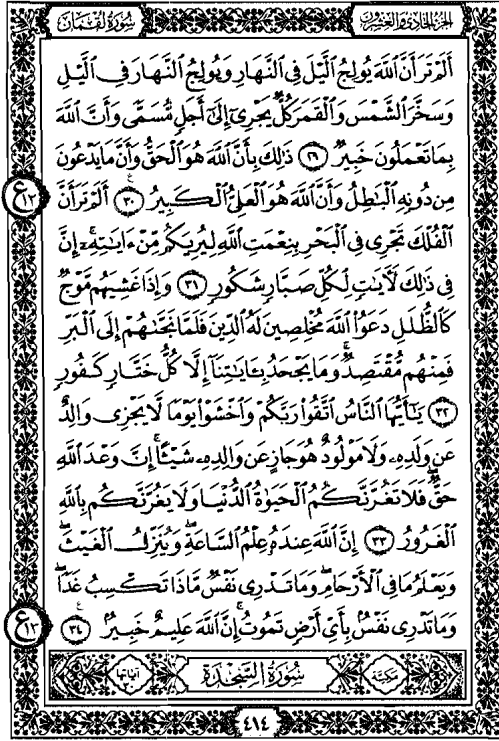 الجزء الحادي والعشرون سورة لقمان
أَلَمْ تَرَ أَنَّ ٱللَّهَ يُولِجُ ٱلَّيْلَ فِى ٱلنَّهَارِ وَيُولِجُ ٱلنَّهَارَ فِى ٱلَّيْلِ
وَسَخَّرَ ٱلشَّمْسَ وَٱلْقَمَرَ كُلٌّ يَجْرِىٓ إِلَىٰٓ أَجَلٍ مُّسَمًّى وَأَنَّ ٱللَّهَ
بِمَا تَعْمَلُونَ خَبِيرٌ ٢٩ ذَٰلِكَ بِأَنَّ ٱللَّهَ هُوَ ٱلْحَقُّ وَأَنَّ مَا يَدْعُونَ
مِن دُونِهِ ٱلْبَٰطِلُ وَأَنَّ ٱللَّهَ هُوَ ٱلْعَلِىُّ ٱلْكَبِيرُ ٣٠ أَلَمْ تَرَ أَنَّ
ٱلْفُلْكَ تَجْرِى فِى ٱلْبَحْرِ بِنِعْمَتِ ٱللَّهِ لِيُرِيَكُم مِّنْ ءَايَٰتِهِۦٓ ۚ إِنَّ
فِى ذَٰلِكَ لَءَايَٰتٍ لِّكُلِّ صَبَّارٍ شَكُورٍ ٣١ وَإِذَا غَشِيَهُم مَّوْجٌ
كَٱلظُّلَلِ دَعَوُا۟ ٱللَّهَ مُخْلِصِينَ لَهُ ٱلدِّينَ فَلَمَّا نَجَّىٰهُمْ إِلَى ٱلْبَرِّ
فَمِنْهُم مُّقْتَصِدٌ ۚ وَمَا يَجْحَدُ بِـَٔايَٰتِنَآ إِلَّا كُلُّ خَتَّارٍ كَفُورٍ
٣٢ يَٰٓأَيُّهَا ٱلنَّاسُ ٱتَّقُوا۟ رَبَّكُمْ وَٱخْشَوْا۟ يَوْمًا لَّا يَجْزِى وَالِدٌ
عَن وَلَدِهِۦ وَلَا مَوْلُودٌ هُوَ جَازٍ عَن وَالِدِهِۦ شَيْـًٔا ۚ إِنَّ وَعْدَ ٱللَّهِ
حَقٌّ ۖ فَلَا تَغُرَّنَّكُمُ ٱلْحَيَوٰةُ ٱلدُّنْيَا وَلَا يَغُرَّنَّكُم بِٱللَّهِ
ٱلْغَرُورُ ٣٣ إِنَّ ٱللَّهَ عِندَهُۥ عِلْمُ ٱلسَّاعَةِ وَيُنَزِّلُ ٱلْغَيْثَ
وَيَعْلَمُ مَا فِى ٱلْأَرْحَامِ ۖ وَمَا تَدْرِى نَفْسٌ مَّاذَا تَكْسِبُ غَدًا ۖ
وَمَا تَدْرِى نَفْسٌۢ بِأَىِّ أَرْضٍ تَمُوتُ ۚ إِنَّ ٱللَّهَ عَلِيمٌ خَبِيرٌۢ ٣٤
مكية سورة السجدة
٤١٤